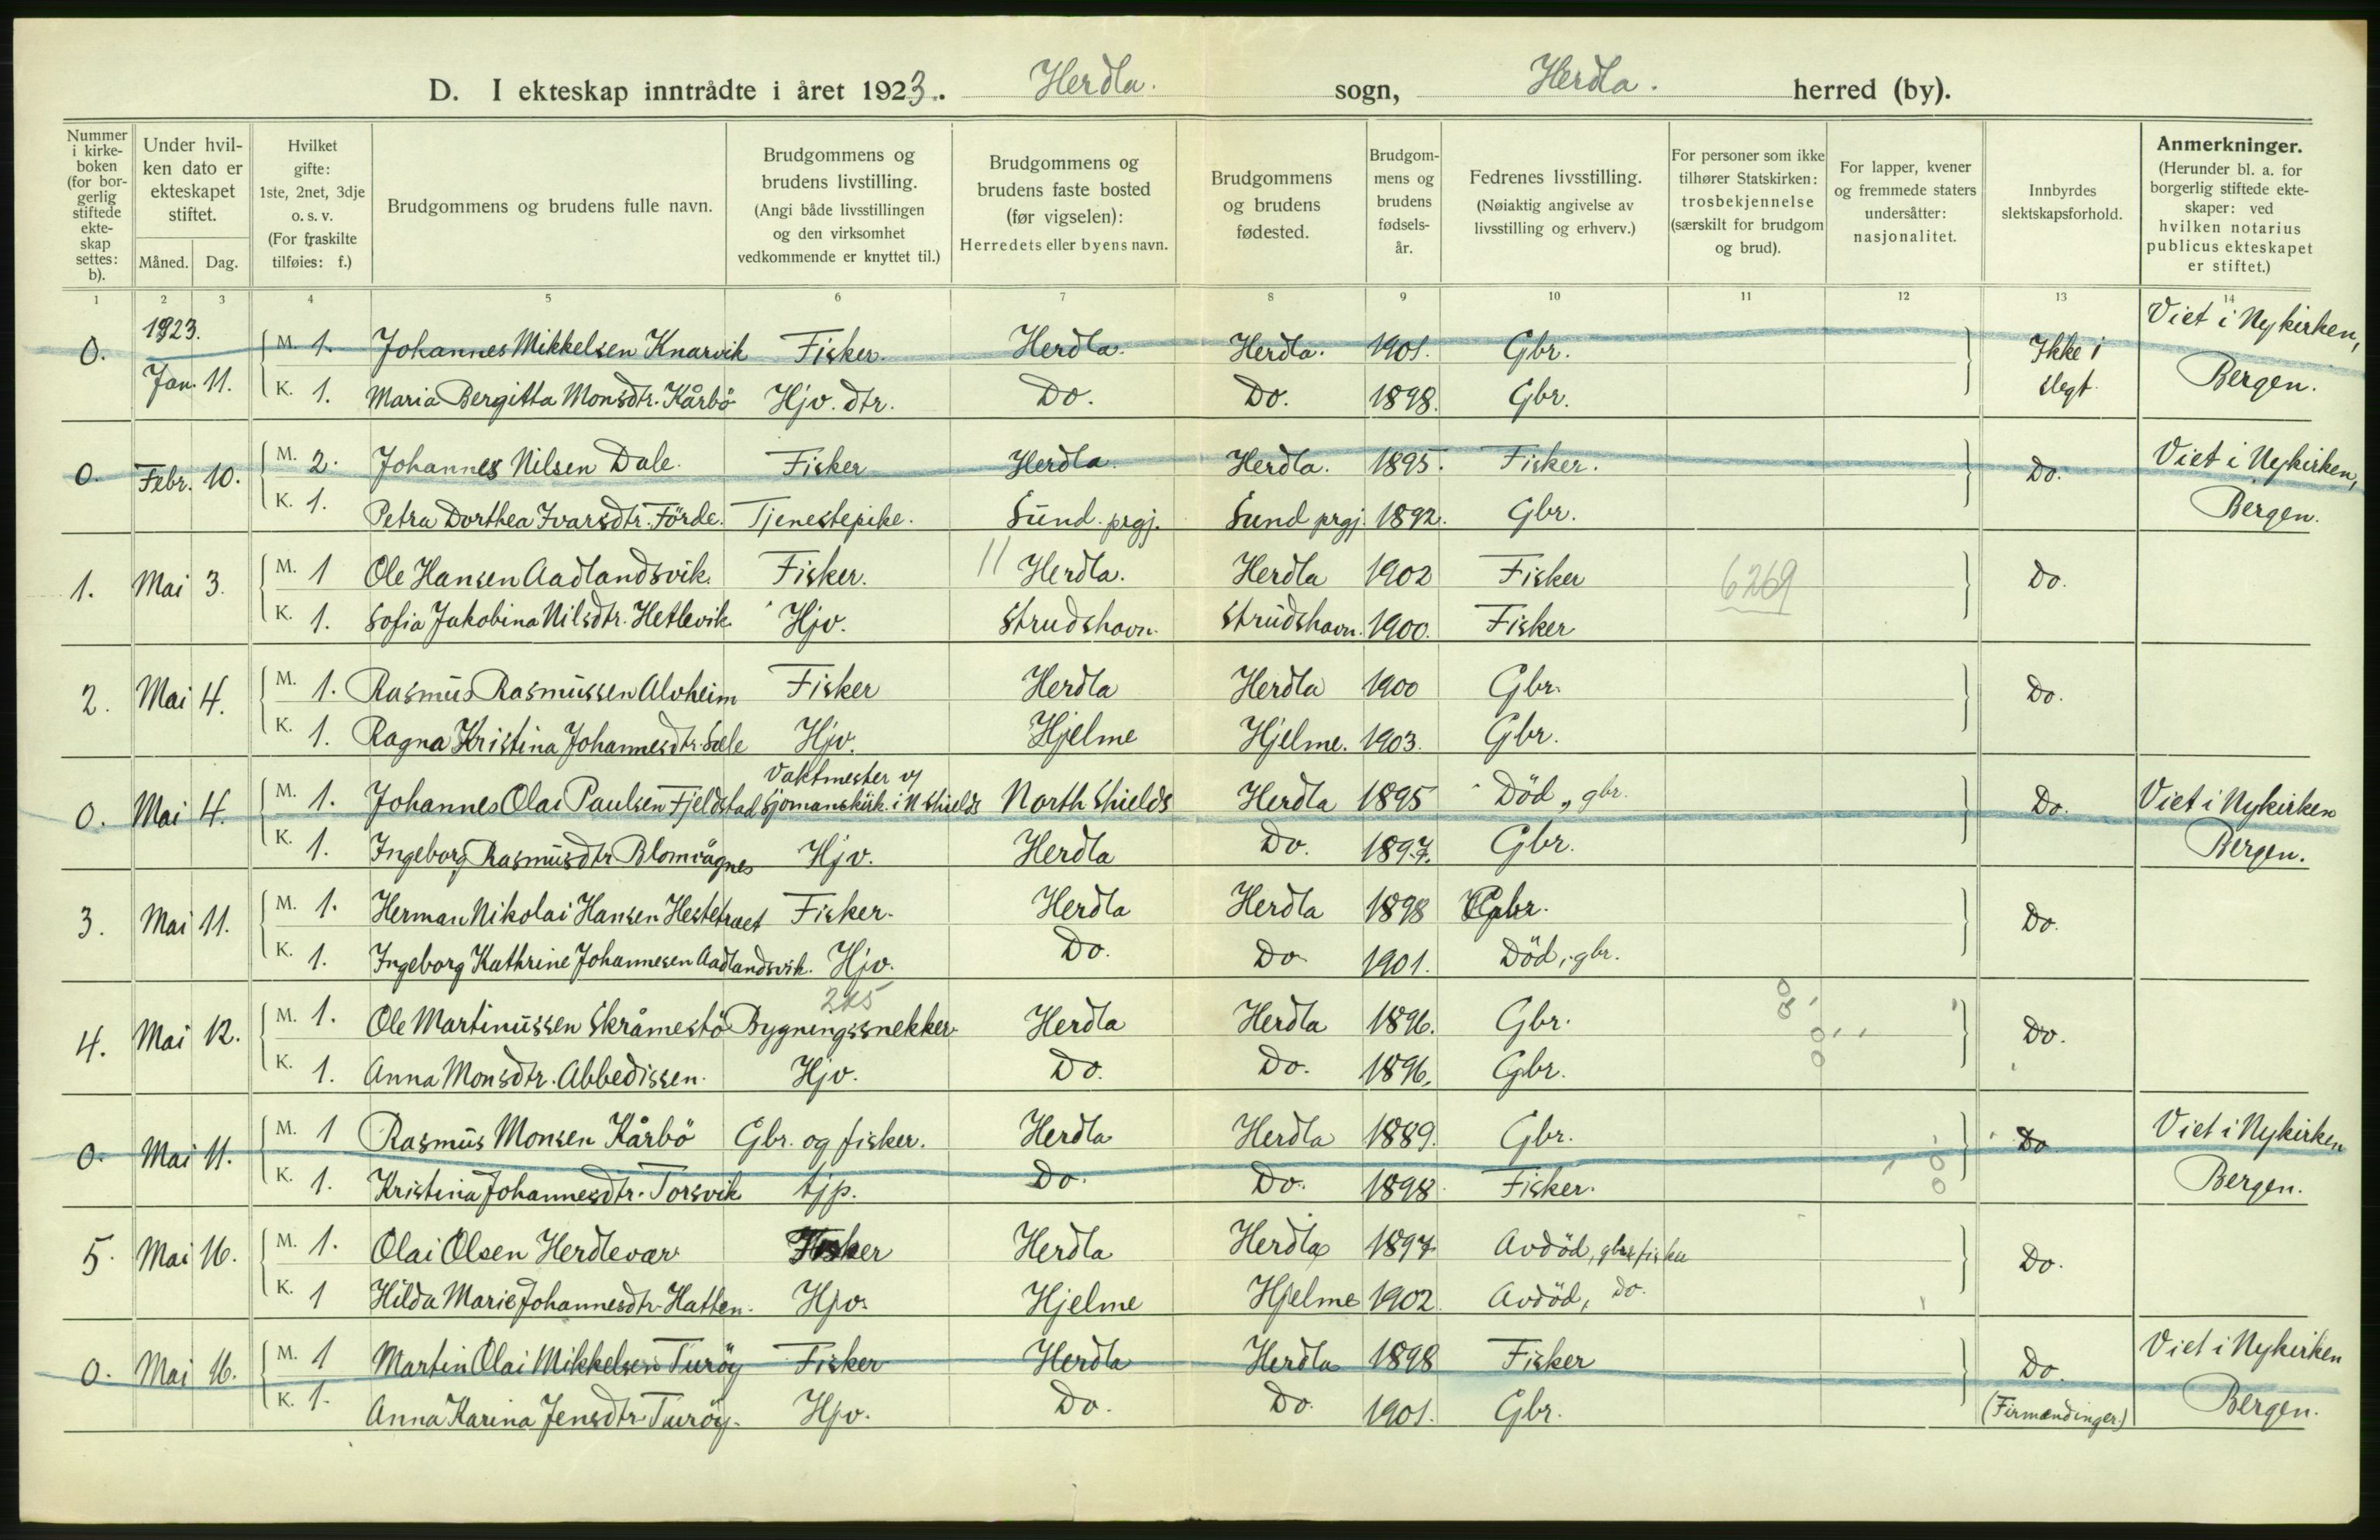 D. I ekteskap inntrådte i året 1923. Herdla. sogn, Herdla. herred (by).
Nummer i kirkeboken (for borgerlig stiftede ekteskap settes: b).
Under hvilken dato er ekteskapet stiftet.
Måned. Dag.
Hvilket gifte: 1ste, 2net, 3dje o. s. v. (For fraskilte tilføies: f.)
Brudgommens og brudens fulle navn.
Brudgommens og brudens livstilling. (Angi både livsstillingen og den virksomhet vedkommende er knyttet til.)
Brudgommens og brudens faste bosted (før vigselen): Herredets eller byens navn.
Brudgommens og brudens fødested.
Brudgommens og brudens fødselsår.
Fedrenes livsstilling. (Nøiaktig angivelse av livsstilling og erhverv.)
For personer som ikke tilhører Statskirken: trosbekjennelse (særskilt for brudgom og brud).
For lapper, kvener og fremmede staters undersåtter: nasjonalitet.
Innbyrdes slektskapsforhold.
Anmerkninger. (Herunder bl. a. for borgerlig stiftede ekteskaper: ved hvilken notarius publicus ekteskapet er stiftet.)
1 2 3 4 5 6 7 8 9 10 11 12 13 14
1923.
0. Jan. 11. M. 1. Johannes Mikkelsen Knarvik Fisker. Herdla. Herdla. 1901. Gbr. Ikke i slegt. Viet i Nykirken,
K. 1. Maria Bergitta Monsdtr. Kårbö Hjv. dtr. Do. Do. 1898. Gbr. Bergen.
0. Febr. 10. M. 2. Johannes Nilsen Dale. Fisker Herdla. Herdla. 1895. Fisker. Do. Viet i Nykirken,
K. 1. Petra Dorthea Ivarsdtr. Förde. Tjenestepike. Sund prgj. Sund prgj. 1892. Gbr. Bergen.
1. Mai 3. M. 1 Ole Hansen Aadlandsvik. Fisker. 11 Herdla. Herdla 1902 Fisker 6269 Do.
K. 1. Sofia Jakobina Nilsdtr. Hetlevik. Hjv. Strudshavn. Strudshavn. 1900. Fisker
2. Mai 4. M. 1. Rasmus Rasmussen Alvheim Fisker Herdla Herdla 1900 Gbr. Do.
K. 1. Ragna Kristina Johannesdtr. Sæle Hjv. Hjelme Hjelme. 1903. Gbr.
0. Mai 4. M. 1. Johannes Olai Paulsen Fjeldstad Vaktmester v/ Sjömanskirk. i N Shields North Shields Herdla 1895 Död, gbr. Do. Viet i Nykirken
K. 1. Ingeborg Rasmusdtr Blomvågnes Hjv. Herdla Do. 1897. Gbr. Bergen.
3. Mai 11. M. 1. Herman Nikolai Hansen Hestetræet Fisker. Herdla Herdla 1898 Gbr. Do.
K. 1. Ingeborg Kathrine Johannesen Aadlandsvik. Hjv. Do. Do 1901. Död, gbr.
4. Mai 12. M. 1. Ole Martinussen Skråmestö Bygningssnekker Herdla Herdla 1896. Gbr. Do.
K. 1. Anna Monsdtr. Abbedissen. Hjv. Do. Do. 1896. Gbr.
0. Mai 11. M. 1 Rasmus Monsen Kårbö Gbr. og fisker. Herdla Herdla 1889. Gbr. Do Viet i Nykirken
K. 1. Kristina Johannesdtr. Torsvik tjp. Do. Do. 1898 Fisker. Bergen.
5. Mai 16. M. 1. Olai Olsen Herdlevær Fisker Herdla Herdla 1897 Avdöd, gbr & fisker Do.
K. 1 Hilda Marie Johannesdtr. Hatten. Hjv. Hjelme Hjelme 1902. Avdöd, Do.
0. Mai 16. M. 1 Martin Olai Mikkelsen Turöy Fisker Herdla Herdla 1898 Fisker Do. Viet i Nykirken
K. 1. Anna Karina Jensdtr Turöy. Hjv. Do. Do. 1901. Gbr. (Firmendinger) Bergen.